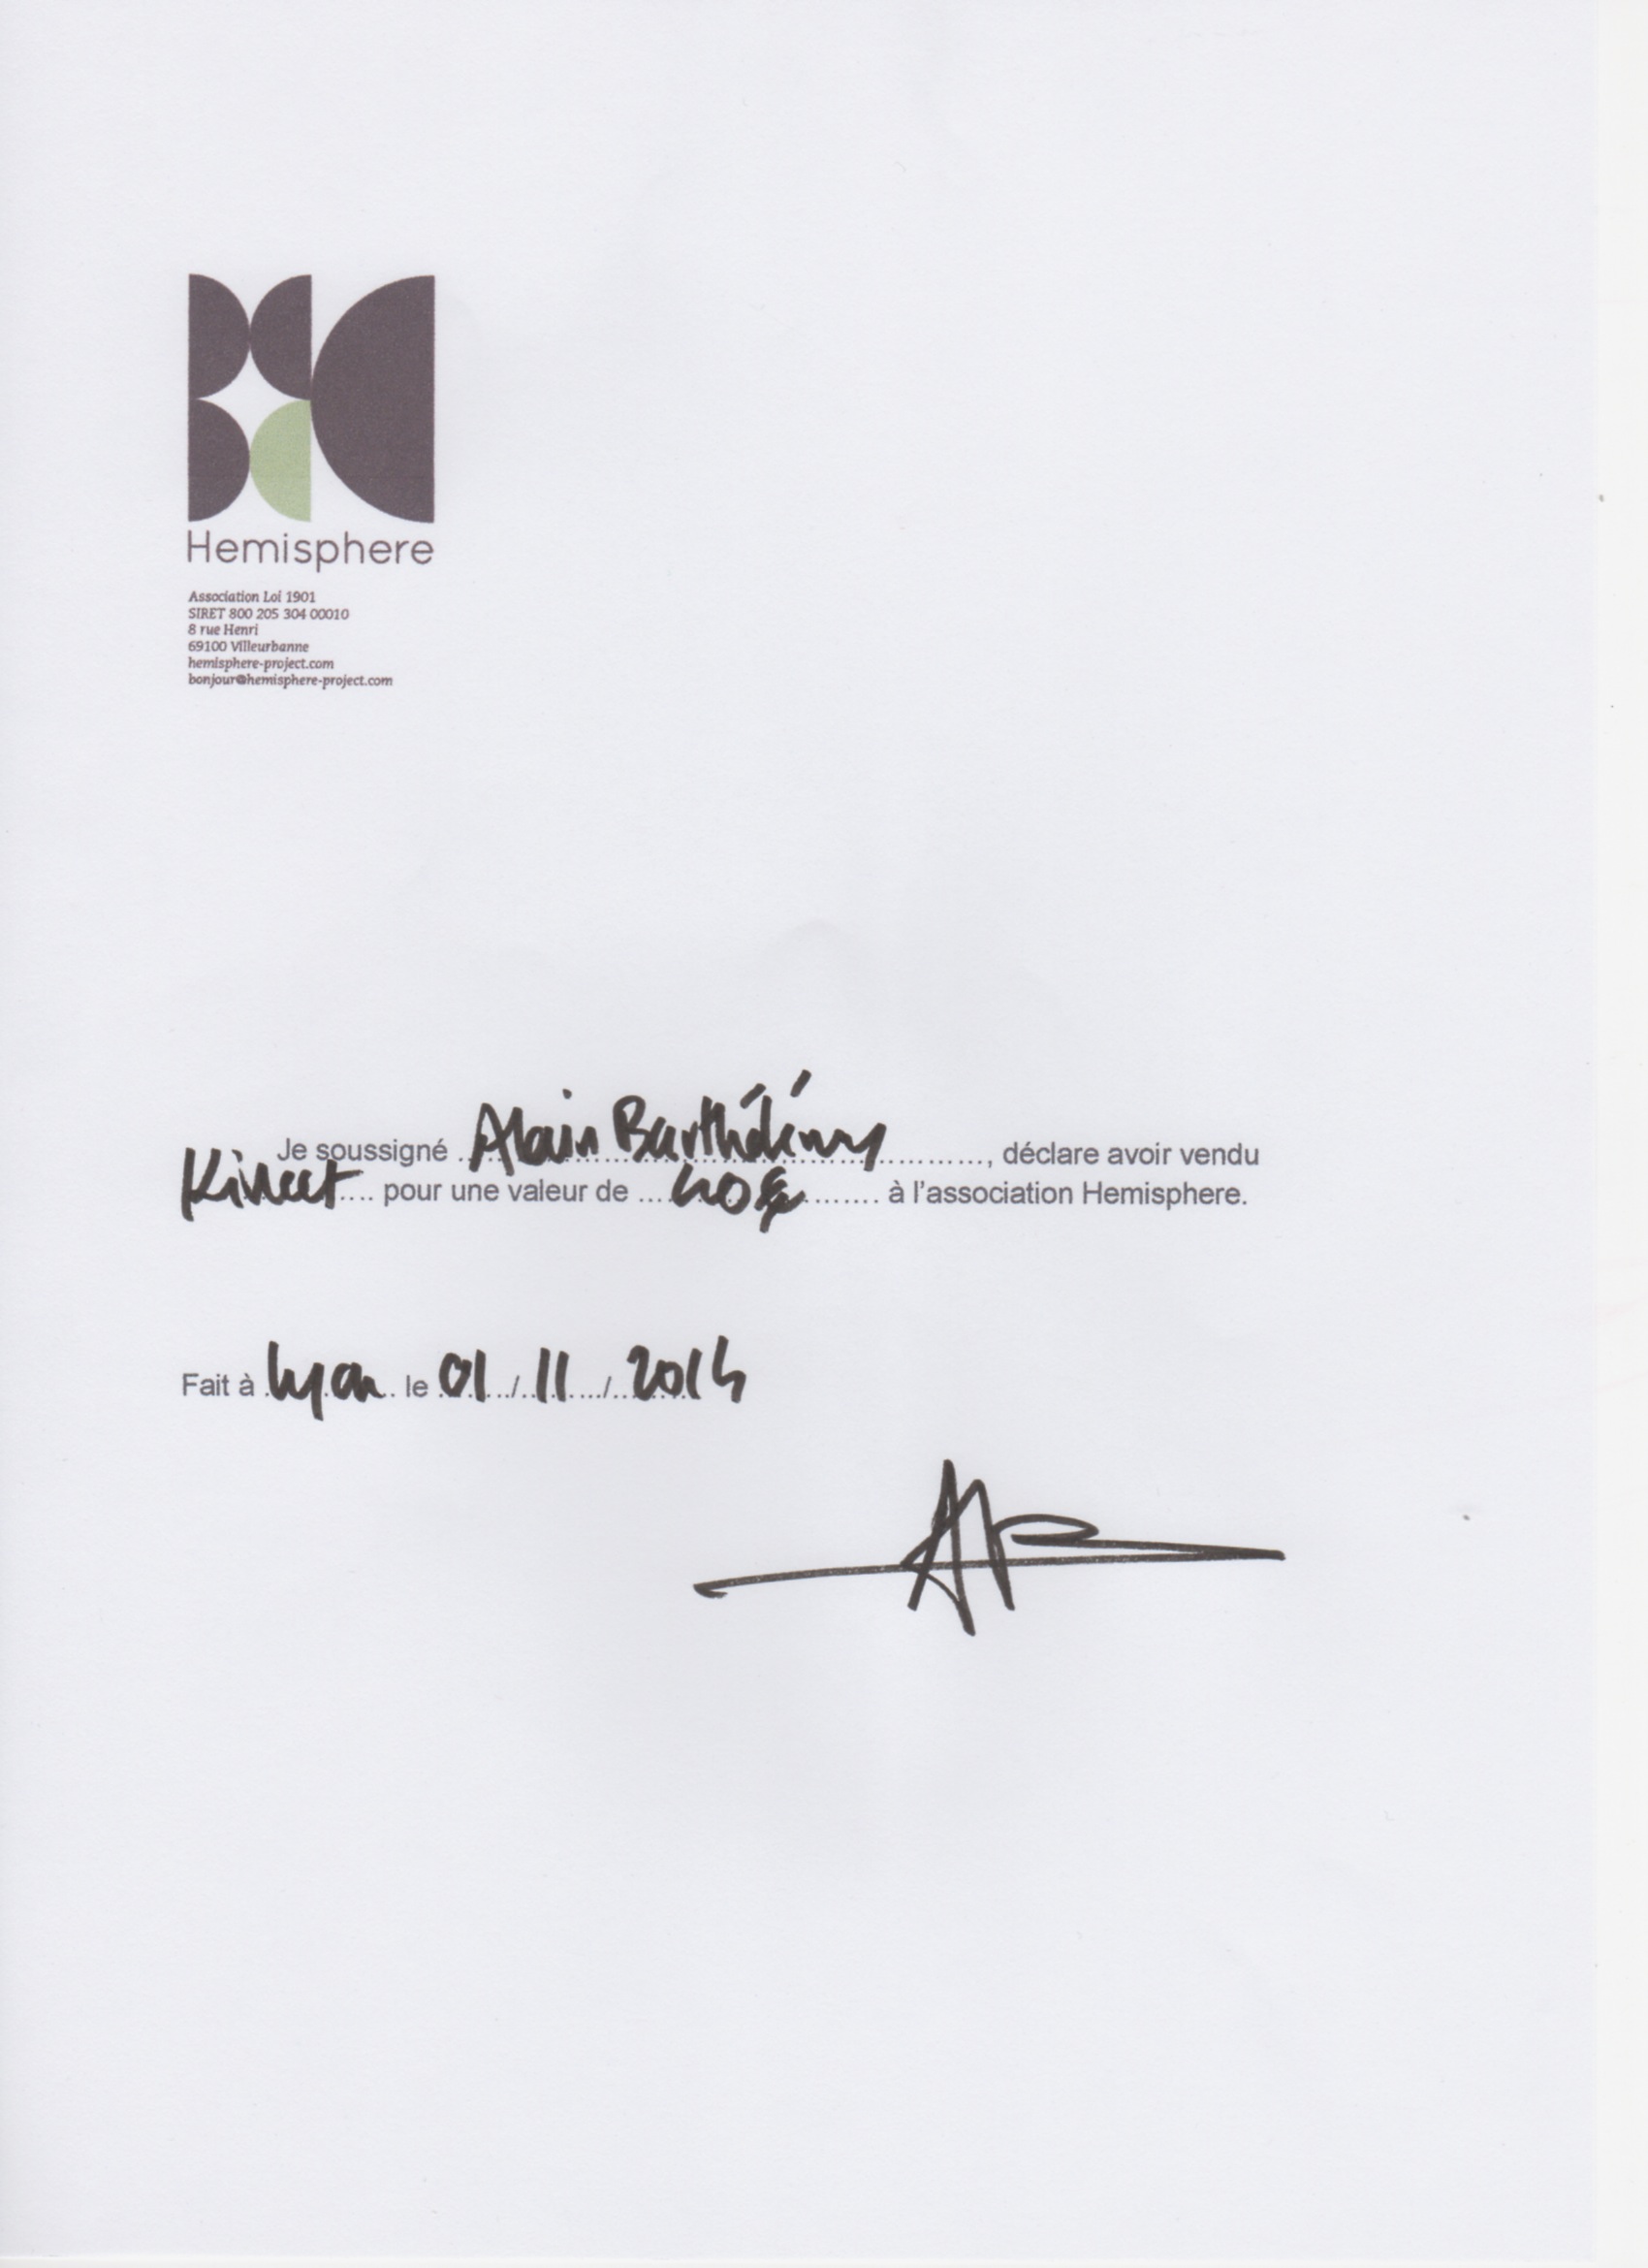 Hemisphere
Association Loi 1901
SIRET 800 205 304 00010
8 rue Henri
69100 Villeurbanne
hemisphere-project.com
bonjour@hemisphere-project.com
Je soussigné Alain Barthélémy, déclare avoir vendu
Kinect pour une valeur de 40€ à l'association Hemisphere.
Fait à Lyon le 01/11/2014